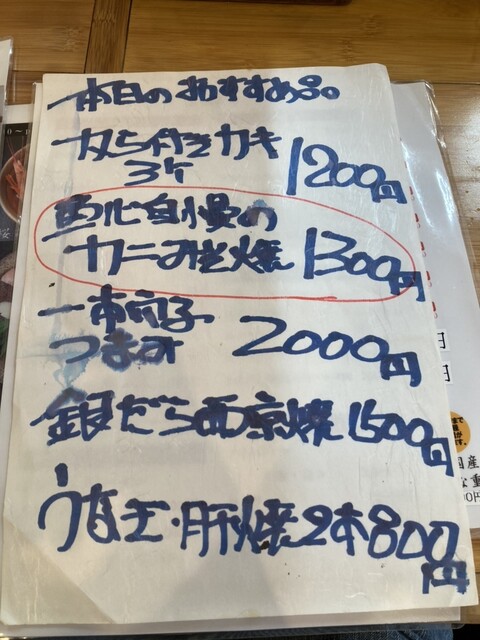 本日のおすすめ品。
から付きカキ
3ケ 1200円
自慢の
カニみそ焼 1300円
一本穴子
つまみ 2000円
銀だら西京焼 1500円
うなぎ・肝焼2本800円
円
円
国産
な重